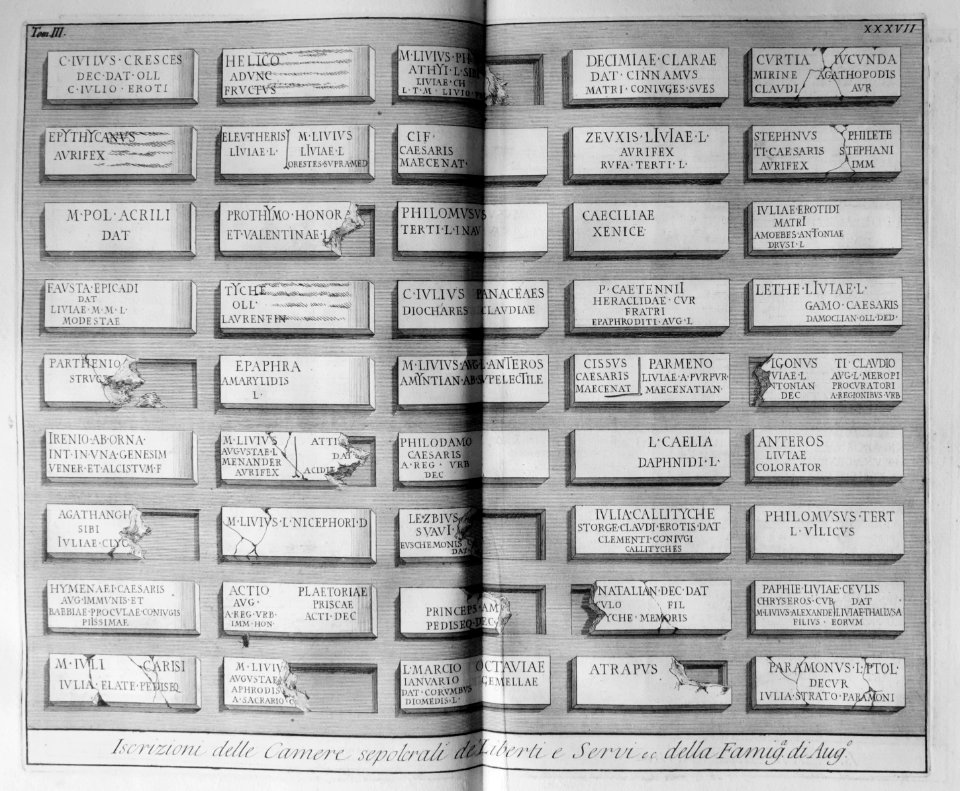 Tom. III.
XXXVII
C·IVILVS·CRESCES
DEC·DAT·OLL
C·IVLIO·EROTI
HELICO
ADVNC
FRVCTVS
M·LIVIVS·PH
ATHYI·L·SIBI
LIVIAE·CH
L·T·M·LIVIO
DECIMIAE·CLARAE
DAT·CINNAMVS
MATRI·CONIVGES·SVES
CVRTIA IVCVNDA
MIRINE AGATHOPODIS
CLAVDI AVR
EPYTHYCANVS
AVRIFEX
ELEVTHERIS M·LIVIVS
LIVIAE·L· LIVIAE·L·
ORESTES·SVPRA·MED
CIF·
CAESARIS
MAECENAT·
ZEVXIS·LIVIAE·L·
AVRIFEX
RVFA·TERTI·L·
STEPHNVS PHILETE
TI·CAESARIS STEPHANI
AVRIFEX IMM
M·POL·ACRILI
DAT
PROTHYMO·HONORA
ET·VALENTINAE·L
PHILOMVSVS
TERTI·L·INAV
CAECILIAE
XENICE·
IVLIAE·EROTIDI
MATRI
AMOEBES·ANTONIAE
DRVSI·L
FAVSTA·EPICADI
DAT
LIVIAE·M·M·L·
MODESTAE
TYCHE
OLL·
LAVRENTIN
C·IVLIVS PANACEAES
DIOCHARES CLAVDIAE
P·CAETENNII
HERACLIDAE·CVR
FRATRI
EPAPHRODITI·AVG·L·
LETHE·LIVIAE·L·
GAMO·CAESARIS
DAMOCLIAN·OLL·DED·
PARTHENIO
STRVC
EPAPHRA
AMARYLIDIS
L·
M·LIVIVS·AVG·L·ANTEROS
AMYNTIAN·AB·SVPELECTILE
CISSVS PARMENO
CAESARIS LIVIAE·A·PVRPVR·
MAECENAT MAECENATIAN·
IGONVS TI·CLAVDIO
VIAE·L AVG·L·MEROPI
NTONIAN PROCVRATORI
DEC A·REGIONIBVS·VRB
IRENIO·AB·ORNA·
INT·IN·VNA·GENESIM
VENER·ET·ALCISTVM·F
M·LIVIVS ATTI
AVGVSTAE·L DAT
MENANDER
AVRIFEX ACIDI
PHILODAMO
CAESARIS
A·REG·VRB
DEC
L·CAELIA
DAPHNIDI·L·
ANTEROS
LIVIAE
COLORATOR
AGATHANGH
SIBI
IVLIAE·CLYC
M·LIVIVS·L·NICEPHORI·D
LEZBIVS
SVAVI
EVSCHEMONIS
DAT
IVLIA·CALLITYCHE
STORGE·CLAVDI·EROTIS·DAT
CLEMENTI·CONIVGI
CALLITYCHES
PHILOMVSVS·TERT
L·VILICVS
HYMENAEI·CAESARIS
AVG·IMMVNIS·ET
BAEBIAE·PROCVLAE·CONIVGIS
PIISSIMAE
ACTIO PLAETORIAE
AVG· PRISCAE
A·REG·VRB· ACTI·DEC
IMM·HON·
PRINCEPS·AM
PEDISEQ·DEC
NATALIAN·DEC·DAT
VLO FIL
YCHE·MEMORIS
PAPHIE·LIVIAE·CEVLIS
CHRYSEROS·CVB DAT
M·LIVIVS·ALEXANDER·LIVIAE·THALLVSA
FILIVS EORVM
M·IVLI CARISI
IVLIA·ELATE·PEDISEQ
M·LIVIV
AVGVSTAE
APHRODIS
A·SACRARIO
L·MARCIO OCTAVIAE
IANVARIO GEMELLAE
DAT·CORVMBVS
DIOMEDIS·L·
ATRAPVS
PARAMONVS·L·PTOL·
DECVR
IVLIA·STRATO·PARAMONI
Iscrizioni delle Camere sepolcrali de' Liberti e Servi ec. della Famig.a di Aug.o